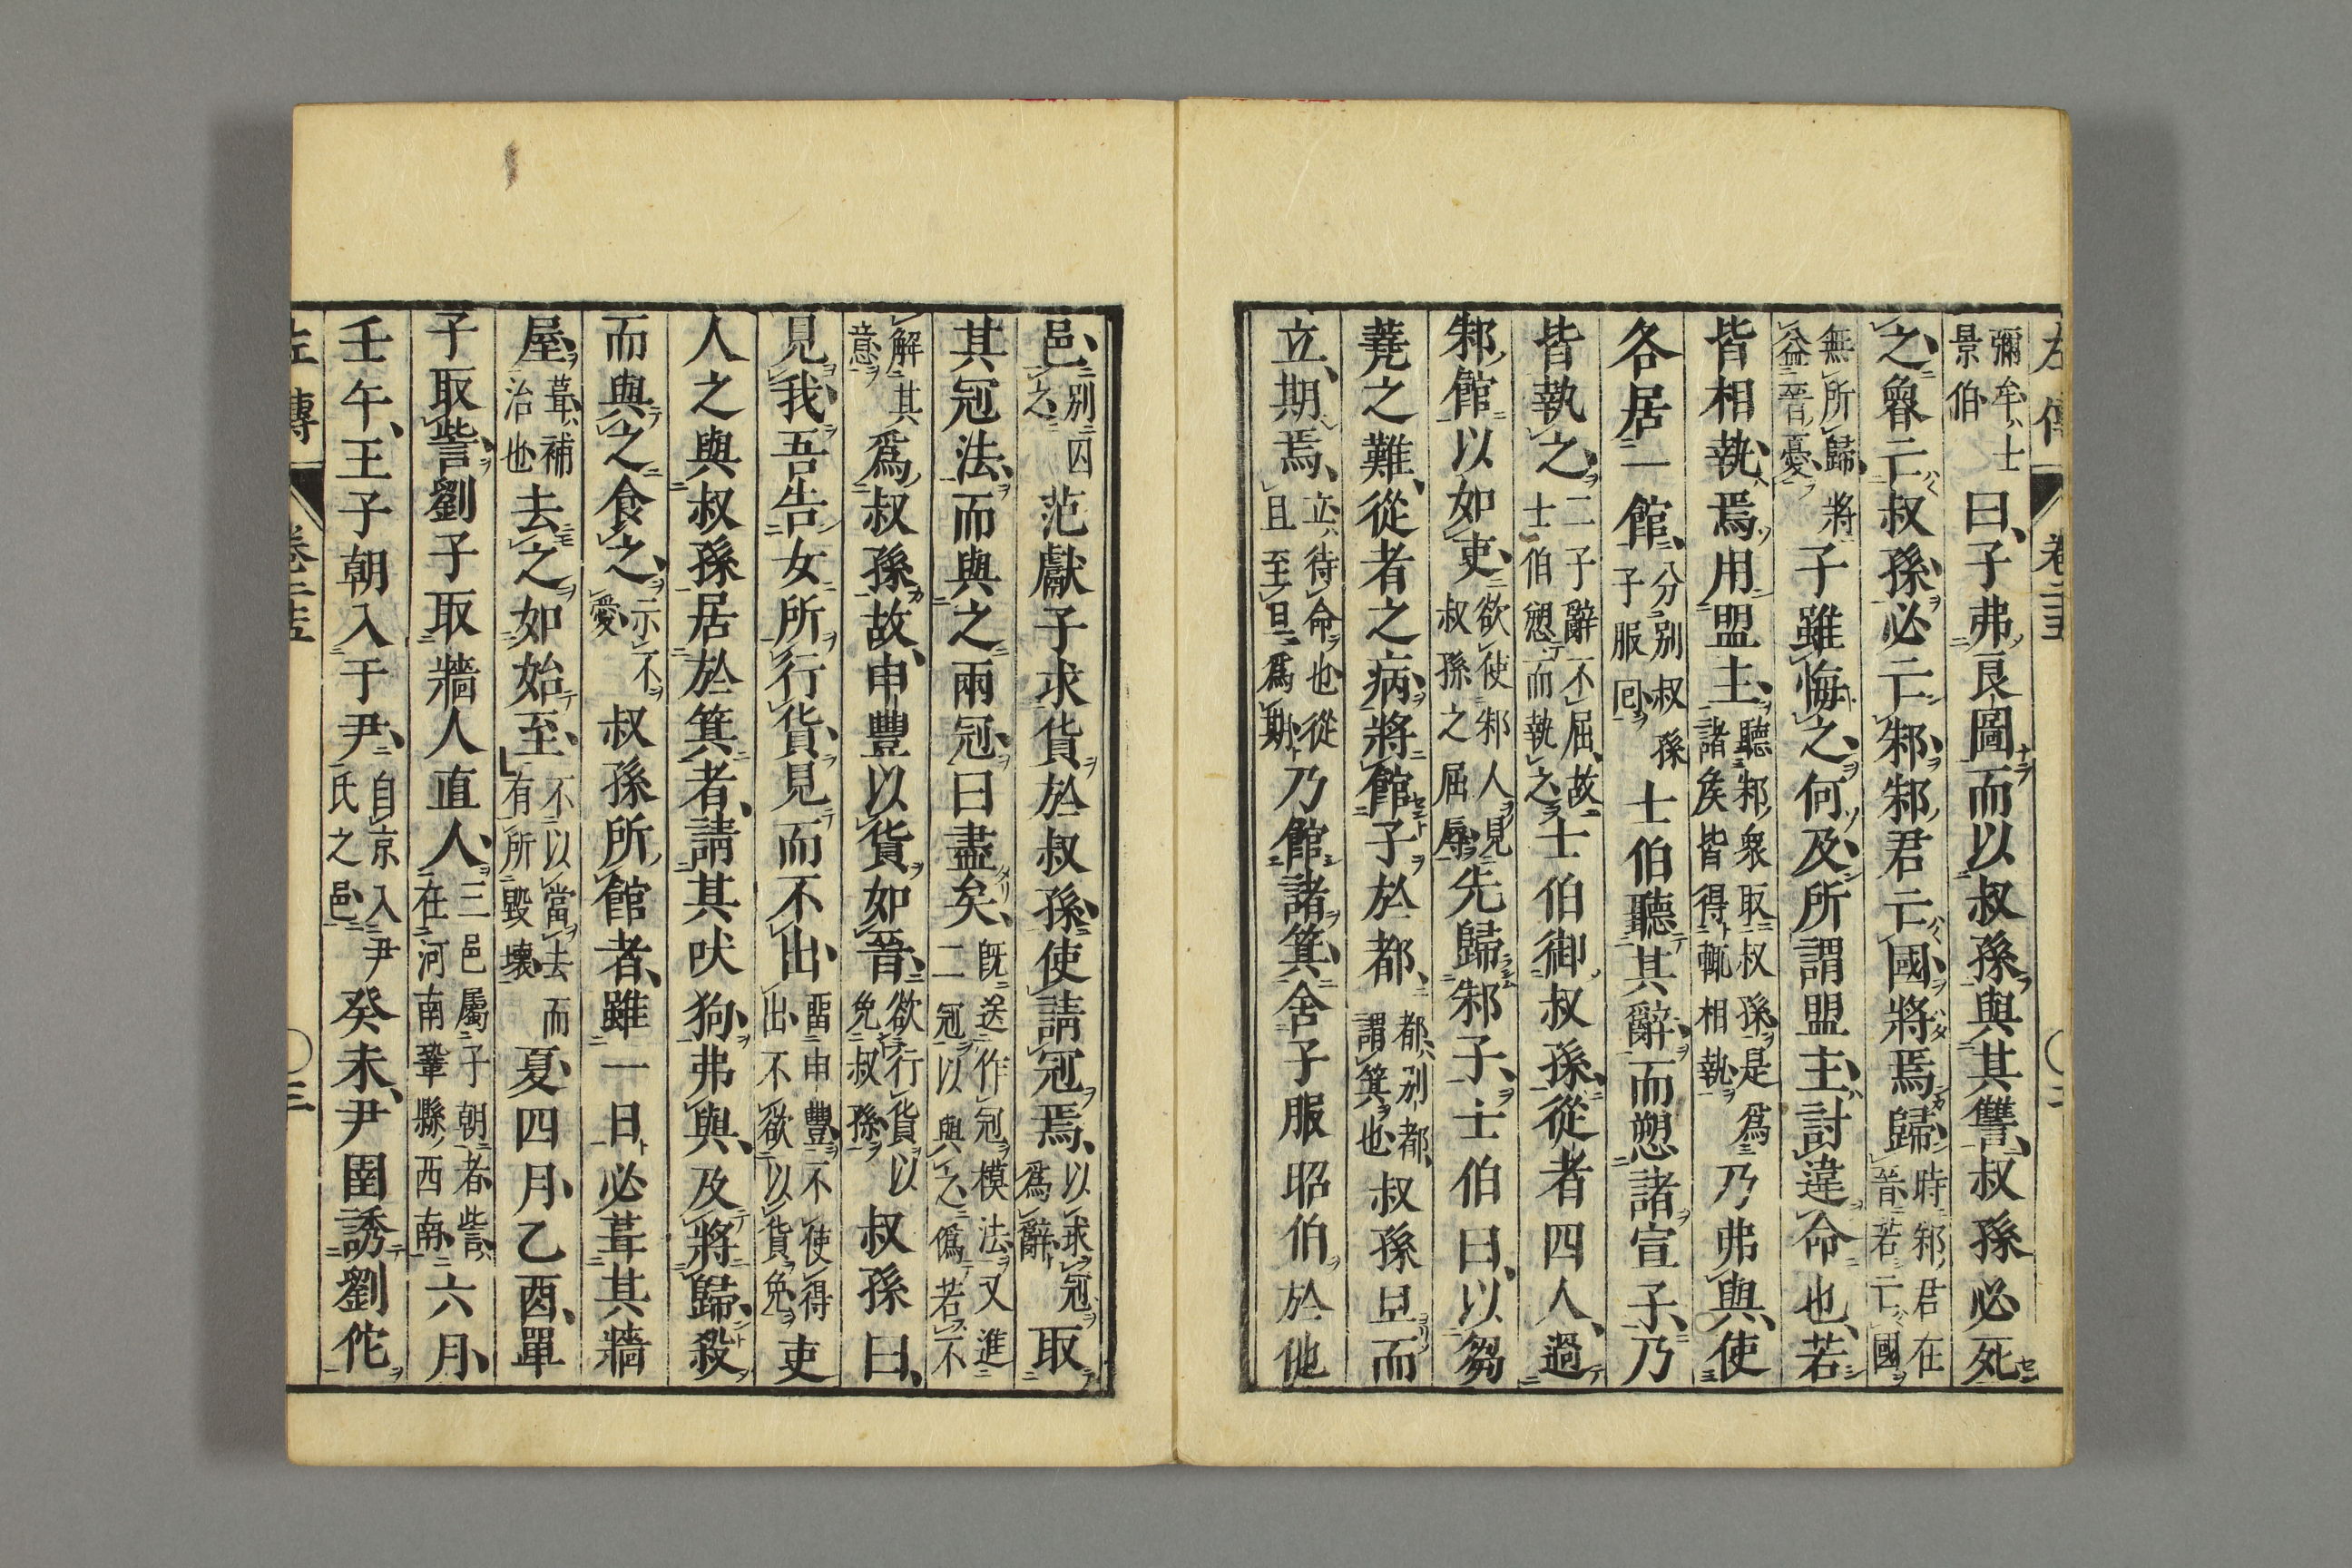 左傳 卷二十五 二
彌牟士景伯曰子弗良圖而以叔孫與其讐叔孫必死
之魯亡叔孫必亡邾邾君亡國將焉歸時邾君在晉若亡國
無所歸將益晉憂子雖悔之何及所謂盟主討違命也若
皆相執焉用盟主聽邾衆取叔孫是爲諸矦皆得輒相執乃弗與使
各居一館分别叔孫子服囘士伯聽其辭而愬諸宣子乃
皆執之二子辭不屈故士伯愬而執之士伯御叔孫從者四人過
邾館以如吏欲使邾人見叔孫之屈辱先歸邾子士伯曰以芻
蕘之難從者之病將館子於都都别都謂箕也叔孫旦而
立期焉立待命也從旦至旦爲期乃館諸箕舍子服昭伯於他
邑别囚之范獻子求貨於叔孫使請冠焉以求冠爲辭取
其冠法而與之兩冠曰盡矣既送作冠模法又進二冠以與之僞若不
解其意爲叔孫故申豐以貨如晉欲行貨以免叔孫叔孫曰
見我吾告女所行貨見而不出畱申豐不使得出不欲以貨免吏
人之與叔孫居於箕者請其吠狗弗與及將歸殺
而與之食之示不愛叔孫所館者雖一日必葺其牆
屋葺補治也去之如始至不以當去而有所毀壞夏四月乙酉單
子取訾劉子取牆人直人三邑屬子朝者訾在河南鞏縣西南六月
壬午王子朝入于尹自京入尹氏之邑癸未尹圉誘劉佗
左傳 卷二十五 三